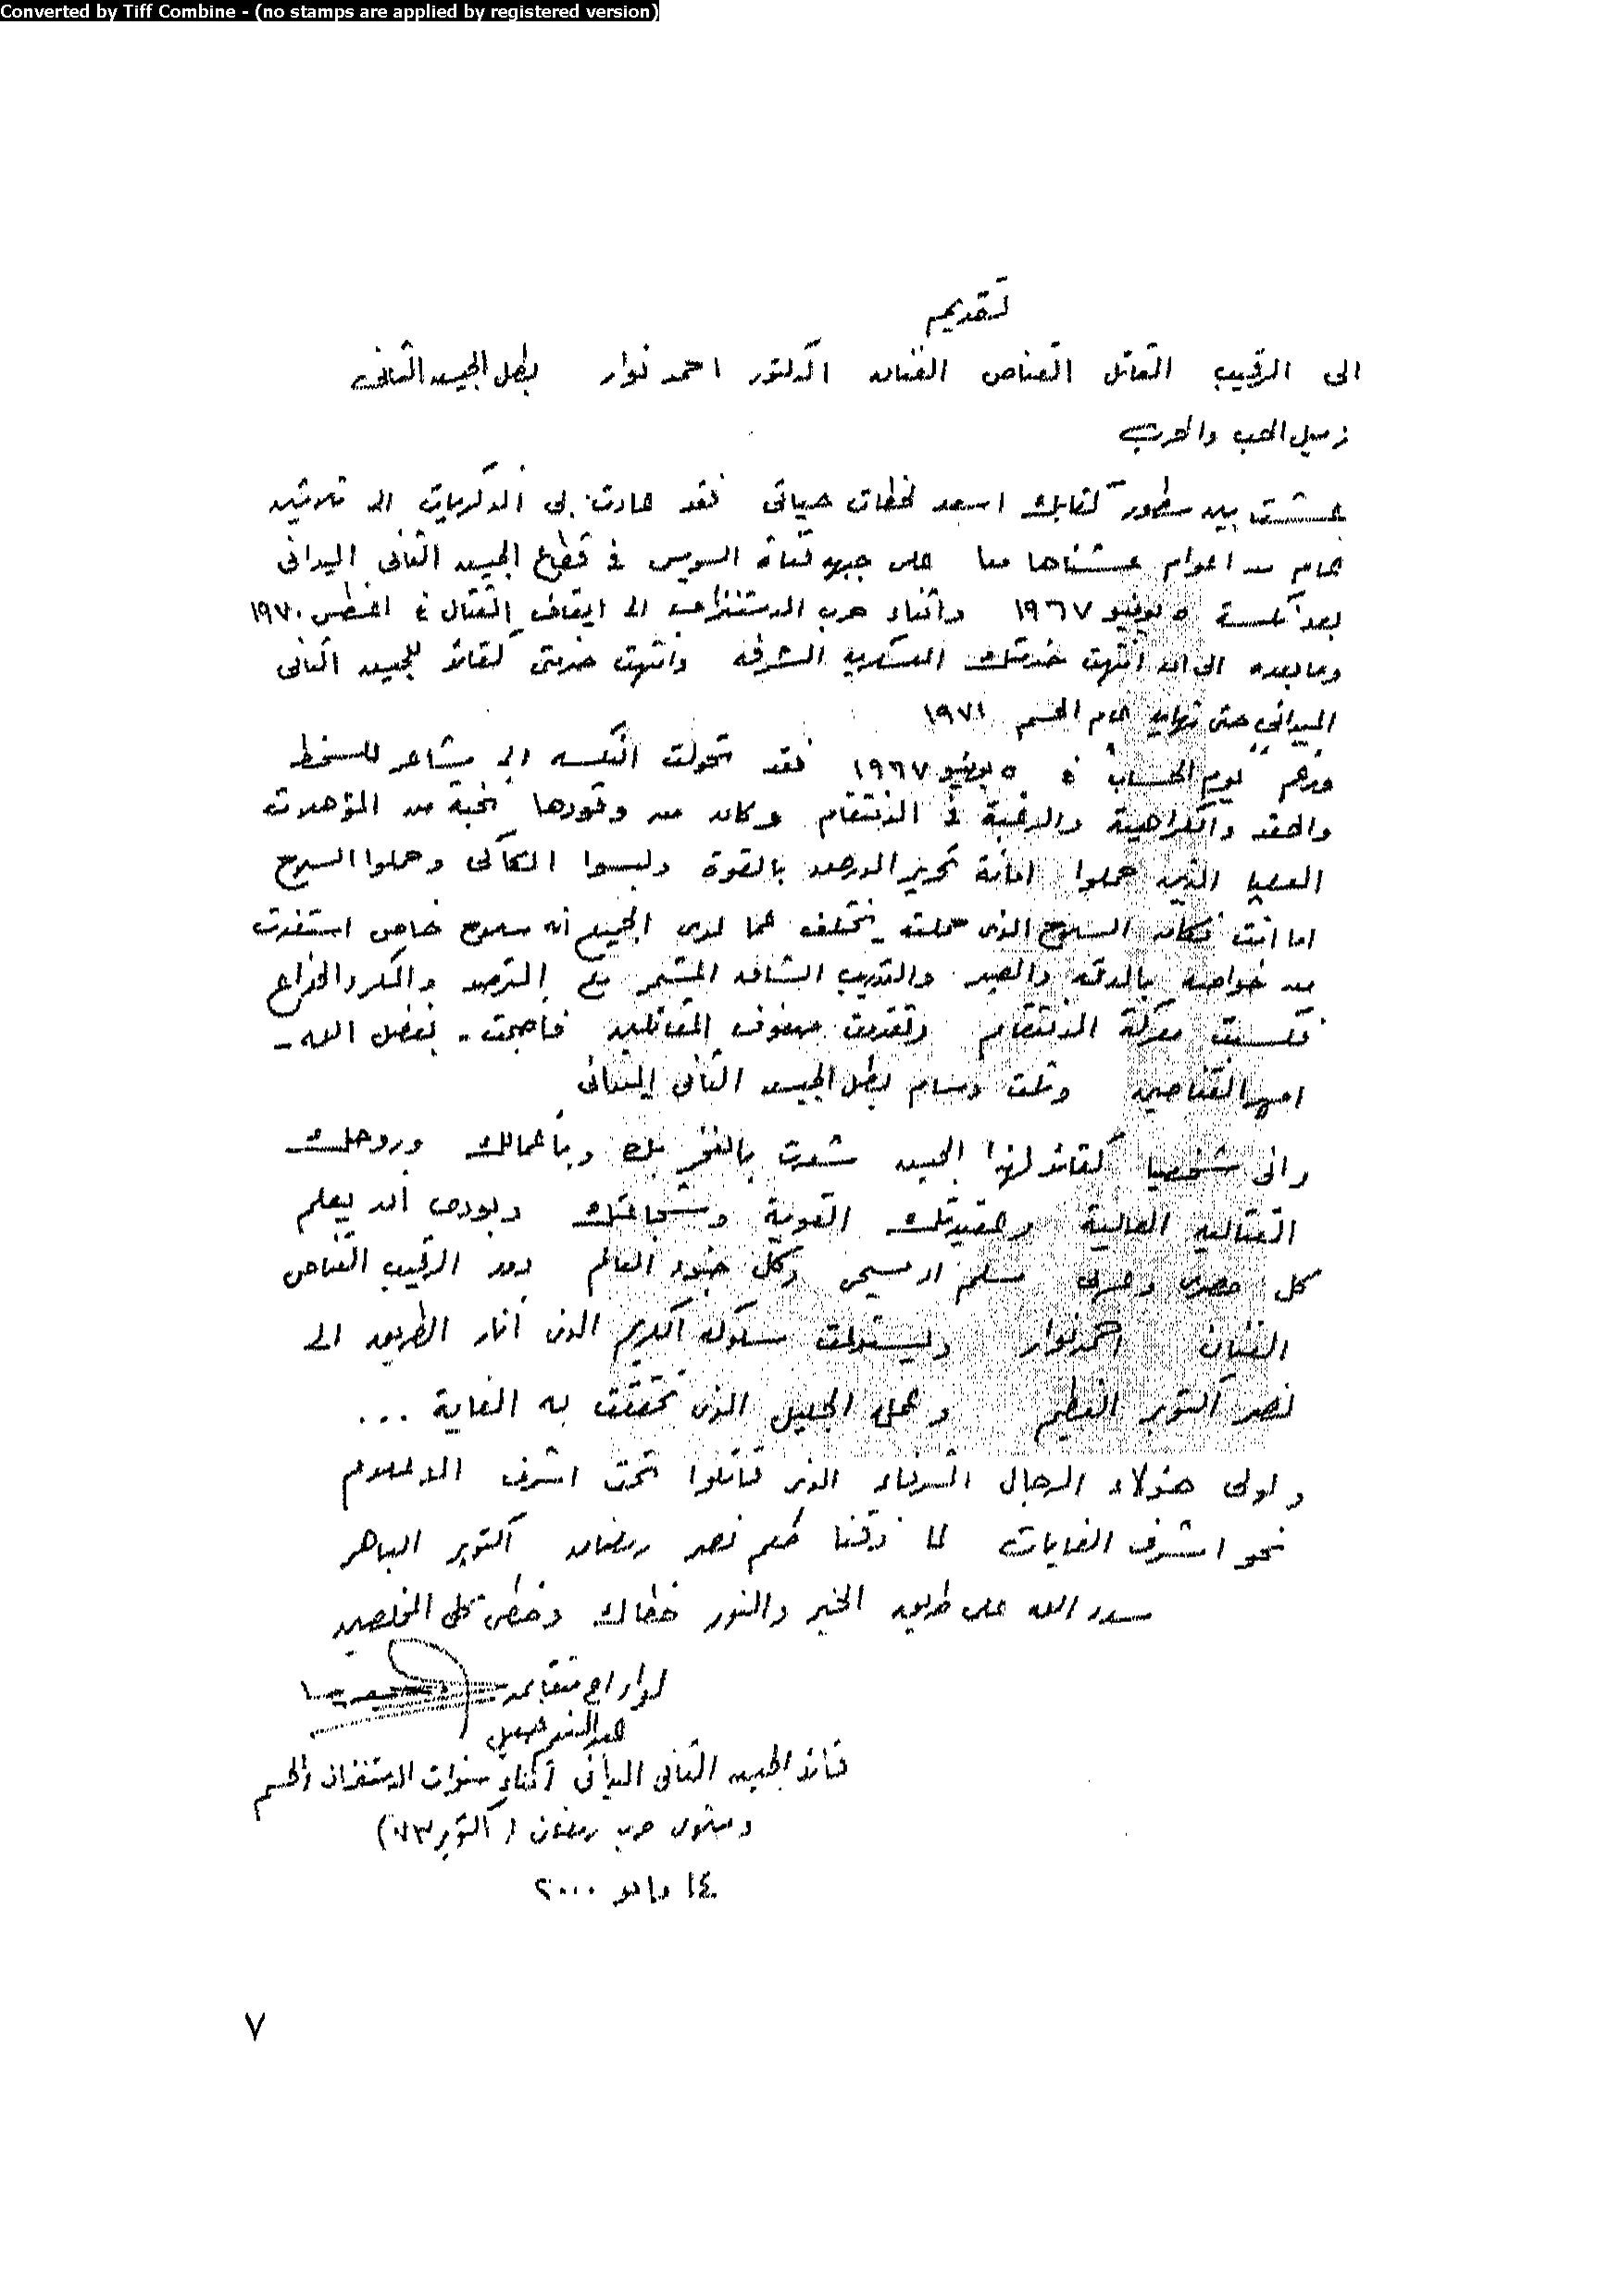 Converted by Tiff Combine - (no stamps are applied by registered version)
تقديم
الى الرقيب المقاتل القناص الفنان الدكتور احمد نوار بطل الجيش الثانى
زميل الحب والحرب
عشت بين سطور كتابك اسعد لحظات حياتى فقد عادت بى الذكريات الى ثلاثين
عام من اعوام عشناها معا على جبهه قناة السويس فى قطاع الجيش الثانى الميدانى
بعد نكسة ٥ يونيو ١٩٦٧ واثناء حرب الاستنزاف الى ايقاف القتال فى اغسطس ١٩٧٠
وما بعده الى ان انتهت خدمتك العسكريه المشرفه وانتهت خدمتى كقائد للجيش الثانى
الميدانى حتى نهايه عام الحسم ١٩٧١
يوم الحساب ٥ يونيو ١٩٦٧ فقد تحولت النكسه الى مشاعر للسخط
والحقد والكراهية والرغبة فى الانتقام وكان من وقودها نخبة من المؤهلات
العليا الذين حملوا امانة تحرير الارض بالقوة ولبسوا الكاكى وحملوا السلاح
اما انت فكان السلاح الذى حملته يختلف عما لدى الجميع انه سلاح خاص استفدت
من خواصه بالدقه والصبر والتدريب الشاق المستمر مع الترصد والمكر والخداع
فكسبت معركة الانتقام وتقدمت صفوف المقاتلين فاصبحت - بفضل الله -
امهر القناصين ونلت وسام بطل الجيش الثانى الميدانى
وانى شخصيا كقائد لهذا الجيش شعرت بالفخر بك وبأعمالك وروحك
القتاليه العالية وعقيدتك القوية وشجاعتك وبودى ان يعلم
كل مصرى وعربى مسلم او مسيحى وكل جنود العالم بدور الرقيب القناص
الفنان احمد نوار وليستولت سلوكه الكريم الذى أنار الطريق الى
نصر اكتوبر العظيم وعمله الجليل الذى تحققت به الغاية ...
ولولا هؤلاء الرجال الشرفاء الذين قاتلوا تحت اشرف الاعلام
نحو اشرف الغايات لما ذقنا طعم نصر رمضان اكتوبر الباهر
سدد الله على طريق الخير والنور خطاك وخطى كل المخلصين
لواء اح متقاعد
عبد المنعم خليل
قائد الجيش الثانى الميدانى أثناء سنوات الاستنزاف والحسم
حرب رمضان (أكتوبر ٧٣)
١٤ مايو ٢٠٠٠
٧